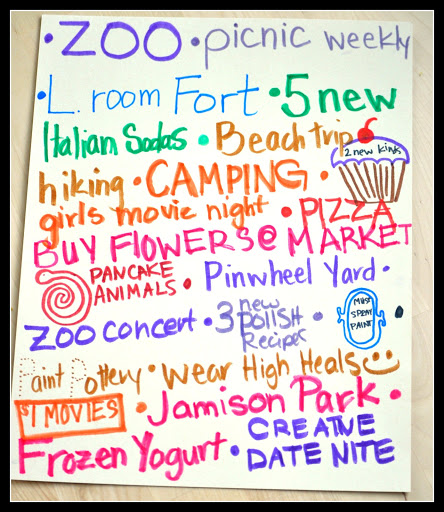 • ZOO • picnic weekly
• L. room Fort • 5 new
Italian Sodas • Beach trip
2 new kinds
hiking • CAMPING •
girls movie night • PIZZA
BUY FLOWERS @ MARKET
PANCAKE
ANIMALS • Pinwheel Yard •
ZOO concert • 3 new
POLISH
Recipes •
MUST
SPRAY
PAINT •
Paint Pottery • Wear High Heals
$1 MOVIES • Jamison Park •
Frozen Yogurt • CREATIVE
DATE NITE